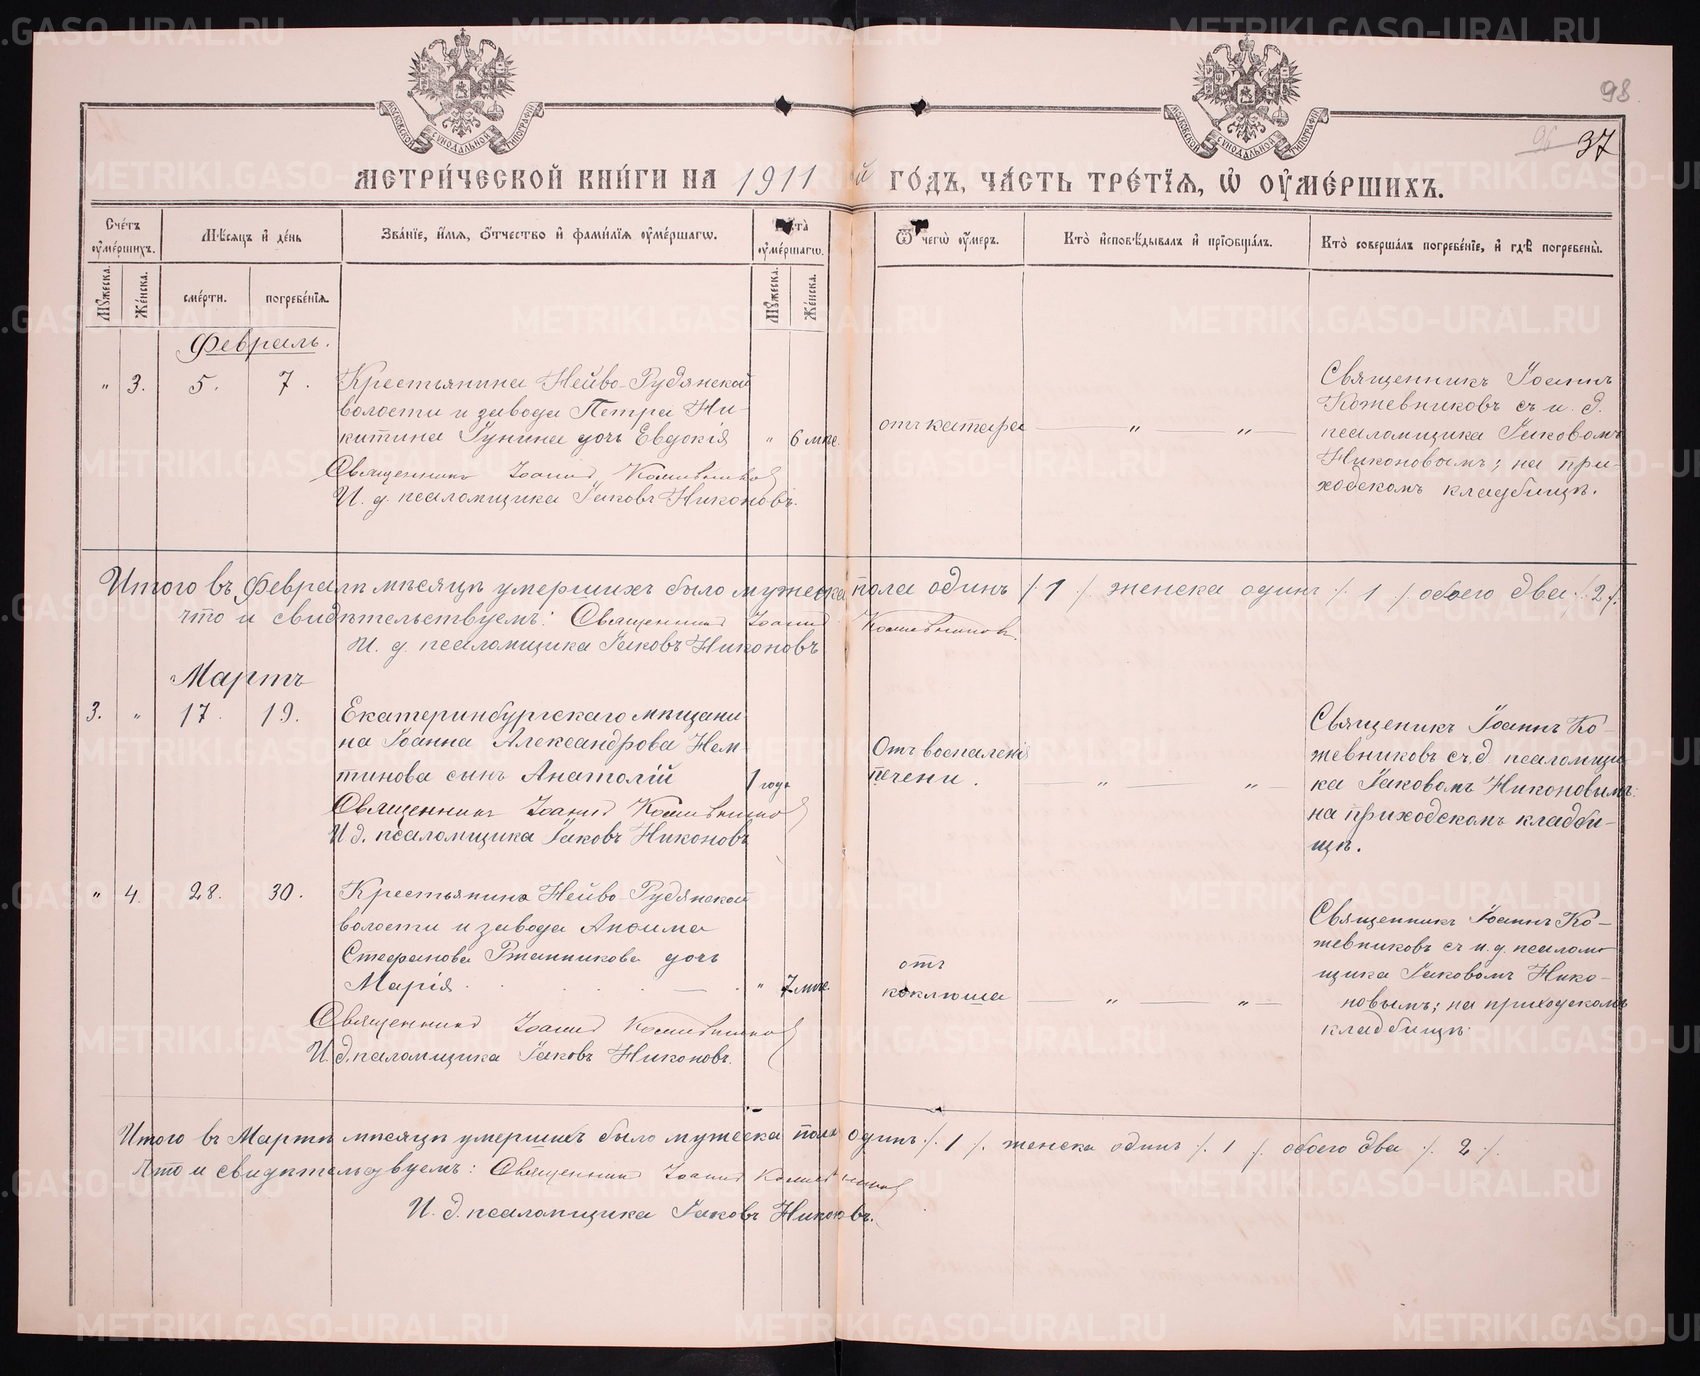 98
96 37
МОСКОВСКОЙ СѴНОДАЛЬНОЙ ТИПОГРАФІИ
МОСКОВСКОЙ СѴНОДАЛЬНОЙ ТИПОГРАФІИ
МЕТРИ́ЧЕСКОЙ КНИ́ГИ НА 1911 й ГО́ДЪ, ЧА́СТЬ ТРЕ́ТЇѦ, Ѡ҆ ОУ҆МЕ́РШИХЪ.
Сче́тъ оу҆ме́ршихъ.
Мѣ́сяцъ и҆ де́нь
Зва́нїе, и҆́мѧ, ѻ҆́тчество и҆ фами́лїѧ оу҆ме́ршагѡ.
Лѣ́та оу҆ме́ршагѡ.
Ѿ чегѡ̀ оу҆́меръ.
Кто̀ и҆сповѣ́дывалъ и҆ прїѡбща́лъ.
Кто̀ соверша́лъ погребе́нїе, и҆ гдѣ̀ погребены̀.
Мꙋ́жеска.
Же́нска.
сме́рти.
погребе́нїѧ.
Мꙋ́жеска.
Же́нска.
Февраль.
" 3. 5. 7.
Крестьянина Нейво-Рудянской
волости и завода Петра Ни-
китина Гунина дочь Евдокія " 6 мѣс.
Священникъ Іоаннъ Кожевниковъ
И. д. псаломщика Іаковъ Никоновъ.
отъ катара " "
Священникъ Іоаннъ
Кожевниковъ съ и. д.
псаломщика Іаковомъ
Никоновымъ; на при-
ходскомъ кладбищѣ.
Итого въ Февралѣ мѣсяцѣ умершихъ было мужеска пола одинъ /. 1 /. женска одинъ /. 1 /. обоего два /. 2 /.
что и свидѣтельствуемъ: Священникъ Іоаннъ Кожевниковъ
И. д. псаломщика Іаковъ Никоновъ
Мартъ
3. " 17. 19.
Екатеринбургскаго мѣщани-
на Іоанна Александрова Нем-
тинова сынъ Анатолій 1 годъ
Священникъ Іоаннъ Кожевниковъ
И д. псаломщика Іаковъ Никоновъ
Отъ воспаленія
печени. " "
Священикъ Іоаннъ Ко-
жевниковъ съ д. псаломщи-
ка Іаковомъ Никоновымъ:
на приходскомъ кладби-
щѣ.
" 4. 28. 30.
Крестьянина Нейво-Рудянской
волости и завода
Стефанова дочь
Марія. " 7 мѣс.
Священникъ Іоаннъ Кожевниковъ
И д. псаломщика Іаковъ Никоновъ.
отъ
коклюша " "
Священникъ Іоаннъ Ко-
жевниковъ съ и. д. псалом-
щика Іаковомъ Нико-
новымъ; на приходскомъ
кладбищѣ.
Итого въ Мартѣ мѣсяцѣ умершихъ было мужеска пола одинъ /. 1 /. женска одинъ /. 1 /. обоего два /. 2 /.
Что и свидѣтельствуемъ: Священникъ Іоаннъ Кожевниковъ
И. д. псаломщика Іаковъ Никоновъ.
METRIKI.GASO-URAL.RU